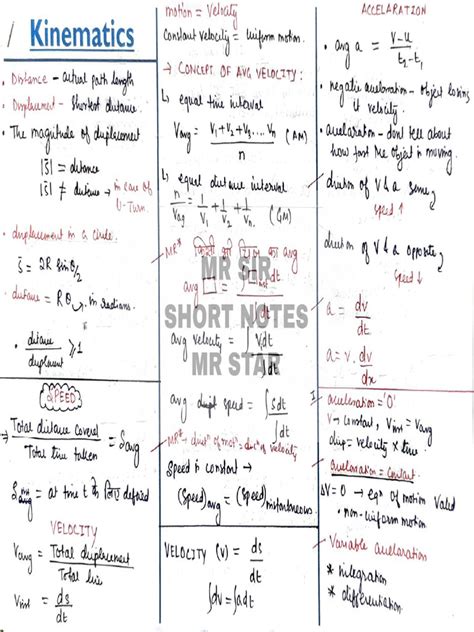 Kinematics
• Distance - actual path length
• Displacement - shortest distance.
• The magnitude of displacement
|S| = distance
|S| ≠ distance → in case of U-Turn.
• displacement in a circle.
S = 2R sin θ/2
• distance = Rθ → in radians.
• distance / displacement ≥ 1
SPEED
→ Total distance covered / Total time taken = Savg
= at time t के लिए defined
VELOCITY
Vavg = Total displacement / Total time
Vinst = ds/dt
motion = Velocity
Constant velocity = uniform motion.
→ CONCEPT OF AVG VELOCITY:
↳ equal time interval
Vavg = V1 + V2 + V3 ... Vn / n (AM)
↳ equal distance interval
n/Vavg = 1/V1 + 1/V2 + 1/V3 (GM)
MR* किसी की का avg
avg □ = ∫□ dt / ∫dt.
avg velocity = ∫Vdt / ∫dt
avg speed = ∫Sdt / ∫dt
MR* direcn of motn = direcn of velocity
Speed is constant →
(Speed)avg = (Speed)instantaneous.
VELOCITY (V) = ds/dt
∫dv = ∫adt
MR SIR
SHORT NOTES
MR STAR
ACCELARATION
• avg a = v-u / t2-t1
• negative accelaration - object losing it velocity.
• accelaration - dont tell about how fast the object is moving.
direction of V & a same
speed ↑
direction of V & a opposite
speed ↓
a = dv/dt
a = v. dv/dx
I accelaration = '0'
V → constant, Vinst = Vavg
disp = velocity × time.
accelaration = constant.
ΔV = 0 → eqn of motion valid
• non-uniform motion
→ Variable accelaration
* integration
* differentiation.